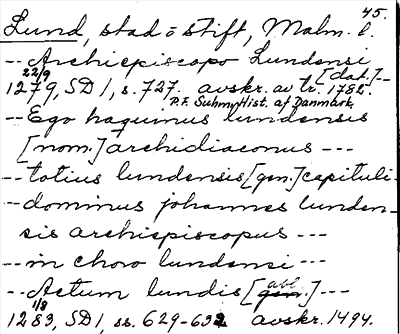 45.
Lund, stad o stift, Malm. l.
-- Archiepiscopo Lundensi
[dat.]--
22/9
1279, SD 1, s. 727. avskr. av tr. 1782.
P.F. Suhm, Hist. af Danmark
-- Ego haquinus lundensis
[nom.] archidiaconus ---
-- totius lundensis [gen.] capituli-
-- dominus johannes lunden-
sis archiepiscopus ---
-- in choro lundensi ---
-- Actum lundis [gen. abl.] ---
1/8
1283, SD 1, ss. 629-632 avskr. 1494.